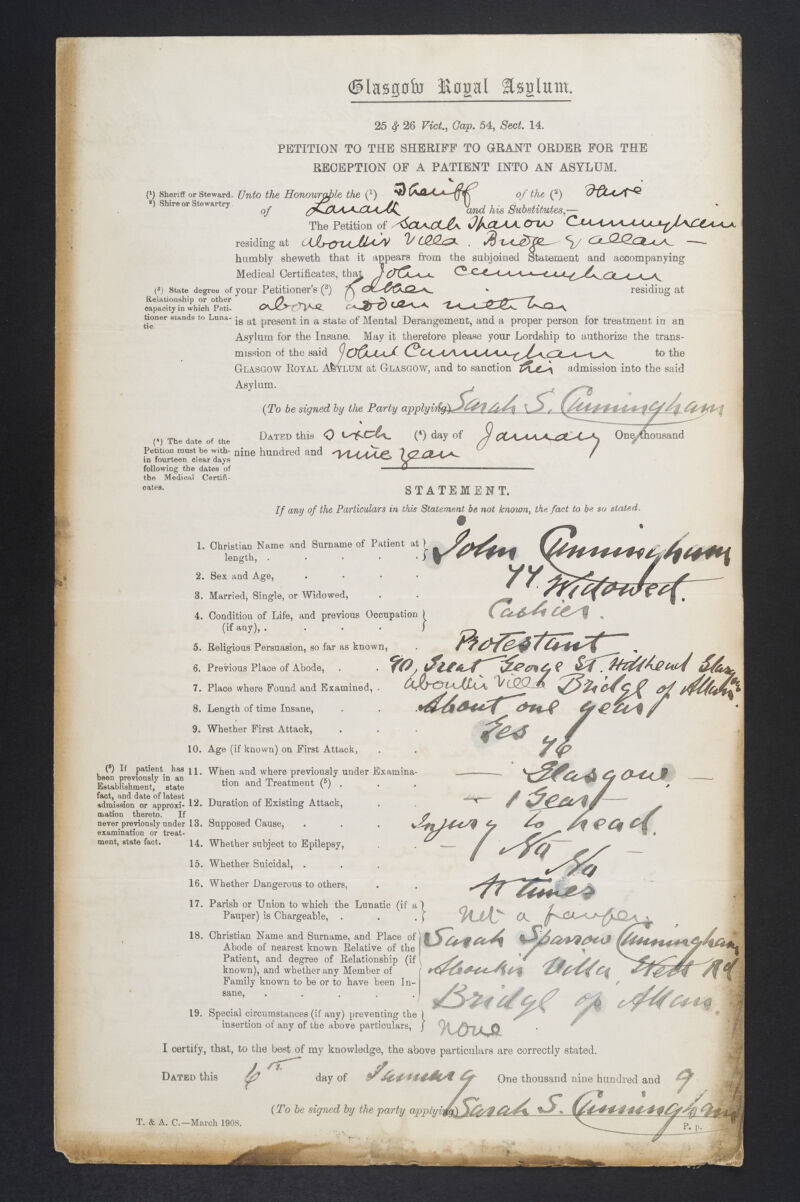 Glasgow Royal Asylum.
25 & 26 Vict., Cap. 54, Sect. 14.
PETITION TO THE SHERIFF TO GRANT ORDER FOR THE
RECEPTION OF A PATIENT INTO AN ASYLUM.
(1) Sheriff or Steward.
2) Shire or Stewartry
Unto the Honourable the (1) Sheriff of the (2) Shire
of Lanark and his Substitutes,—
The Petition of Sarah Sparrow Cunningham
residing at Aboukir Villa. Bridge of Allan —
humbly sheweth that it appears from the subjoined Statement and accompanying
Medical Certificates, that John Cunningham
(3) State degree of
Relationship or other
capacity in which Peti-
tioner stands to Luna-
tic.
your Petitioner's (3) father residing at
above address with her
is at present in a state of Mental Derangement, and a proper person for treatment in an
Asylum for the Insane. May it therefore please your Lordship to authorize the trans-
mission of the said John Cunningham to the
GLASGOW ROYAL ASYLUM at GLASGOW, and to sanction his admission into the said
Asylum.
(To be signed by the Party applying) Sarah S. Cunningham
(4) The date of the
Petition must be with-
in fourteen clear days
following the dates of
the Medical Certifi-
cates.
DATED this sixth (4) day of January One thousand
nine hundred and nine years
STATEMENT.
If any of the Particulars in this Statement be not known, the fact to be so stated.
1. Christian Name and Surname of Patient at
length, . . . . . John Cunningham
2. Sex and Age, . . . . 77.
3. Married, Single, or Widowed, . . Widowed.
4. Condition of Life, and previous Occupation
(if any), . . . . . Cashier.
5. Religious Persuasion, so far as known, . Protestant
6. Previous Place of Abode, . . 90, Great George St. Hillhead Glasgow
7. Place where Found and Examined, . Aboukir Villa Bridge of Allan.
8. Length of time Insane, . . . About one year
9. Whether First Attack, . . . Yes
10. Age (if known) on First Attack, . . 76
(5) If patient has
been previously in an
Establishment, state
fact, and date of latest
admission or approxi-
mation thereto. If
never previously under
examination or treat-
ment, state fact.
11. When and where previously under Examina-
tion and Treatment (5) . . . — Glasgow. —
12. Duration of Existing Attack, . . — 1 Year —
13. Supposed Cause, . . . Injury to head.
14. Whether subject to Epilepsy, . . — No
15. Whether Suicidal, . . . . No
16. Whether Dangerous to others, . . At times
17. Parish or Union to which the Lunatic (if a
Pauper) is Chargeable, . . . Not a pauper.
18. Christian Name and Surname, and Place of
Abode of nearest known Relative of the
Patient, and degree of Relationship (if
known), and whether any Member of
Family known to be or to have been In-
sane, . . . . . .
Sarah Sparrow Cunningham
Aboukir Villa Rd
Bridge of Allan.
19. Special circumstances (if any) preventing the
insertion of any of the above particulars, None
I certify, that, to the best of my knowledge, the above particulars are correctly stated.
DATED this 6th day of January One thousand nine hundred and 9
(To be signed by the party applying) Sarah S. Cunningham
T. & A. C.—March 1908.
P. p.